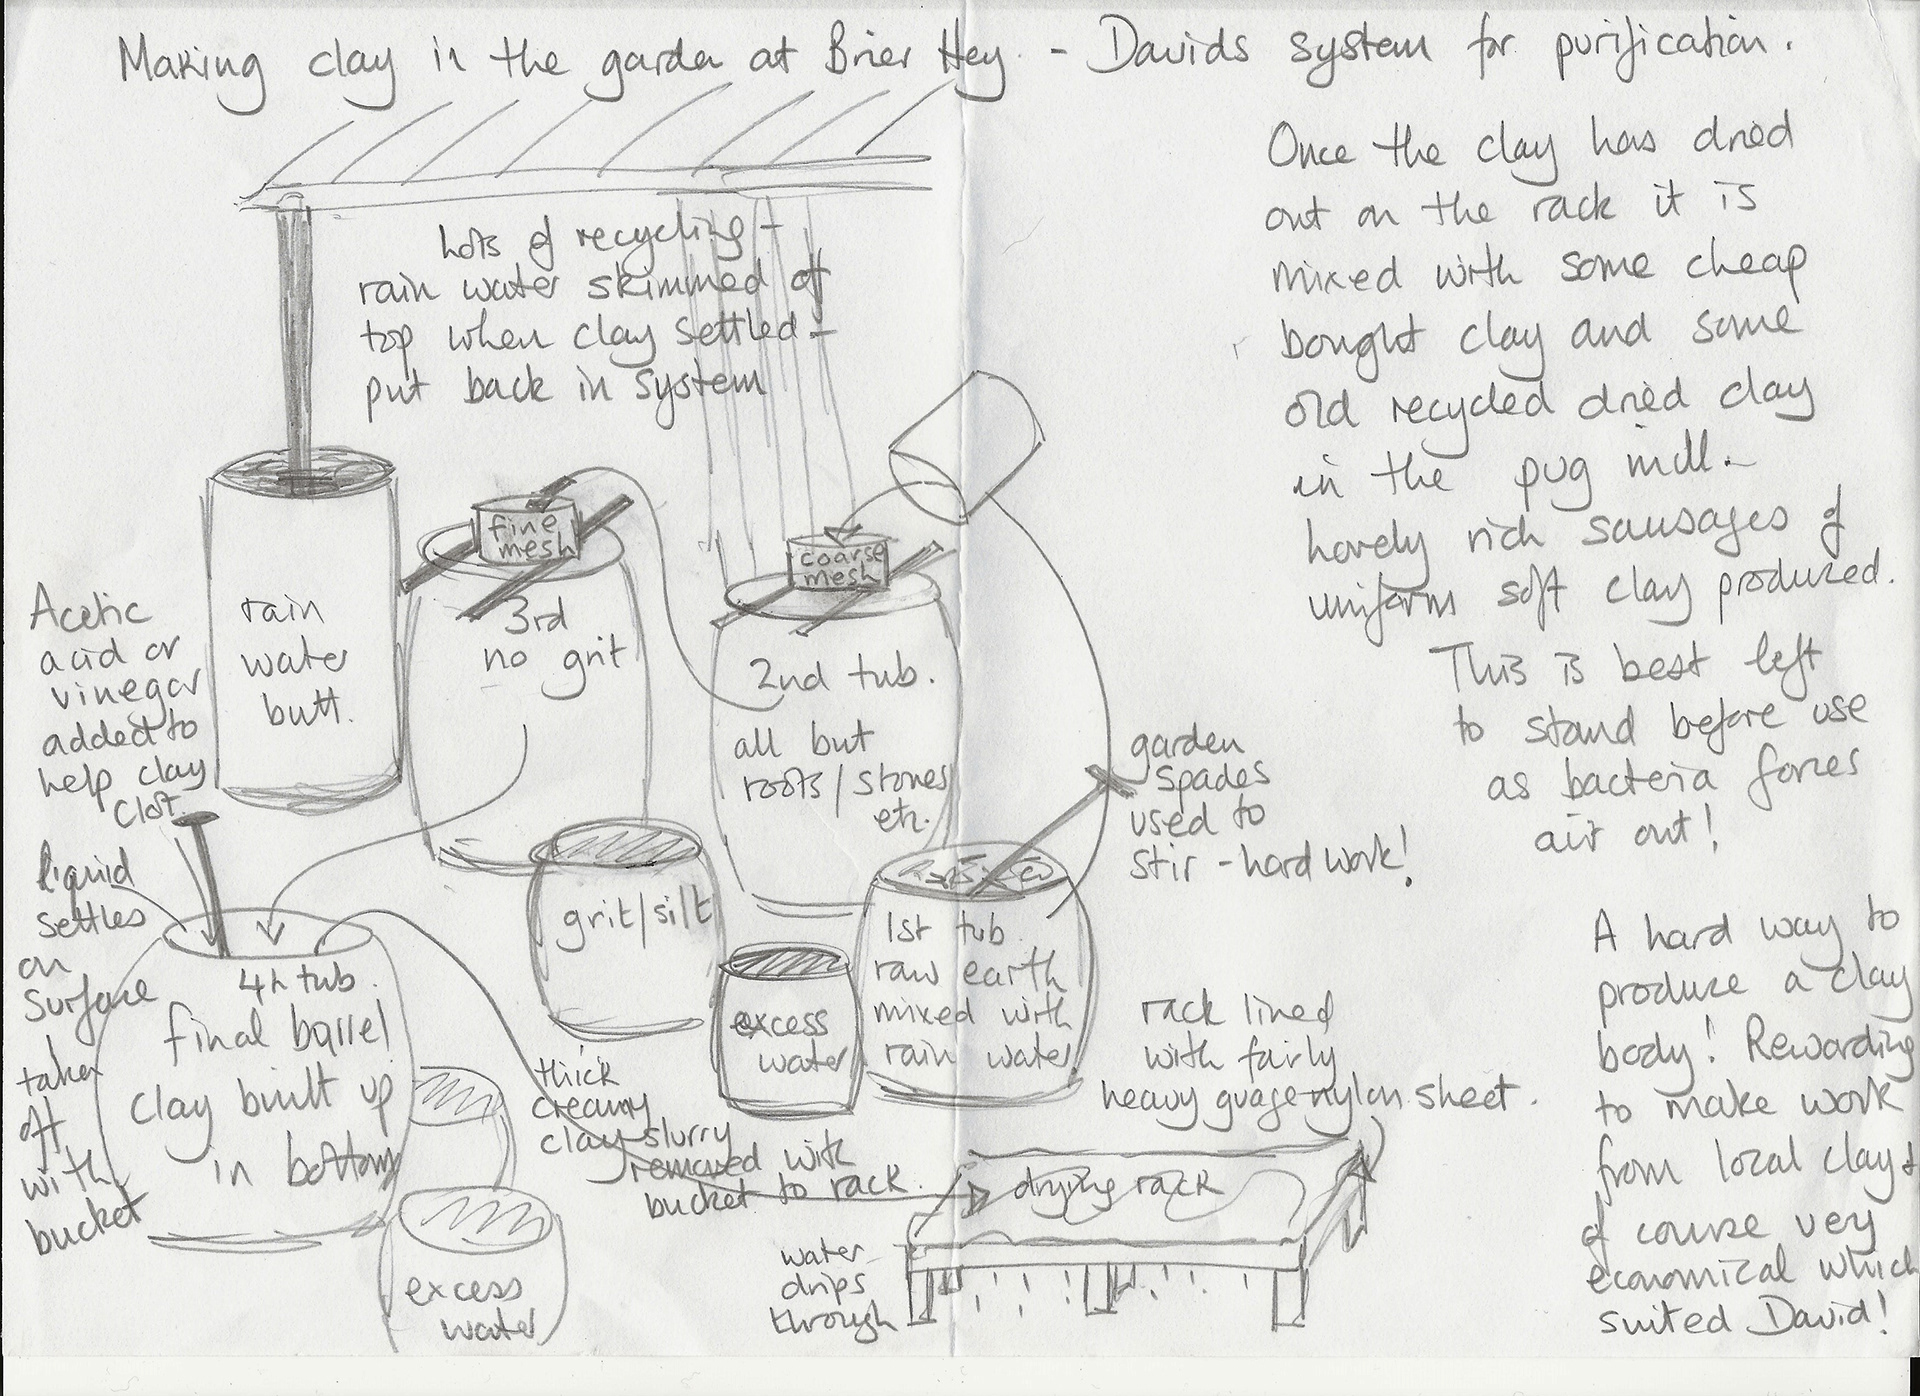 Making clay in the garden at Brier Hey. - Davids system for purification.
Lots of recycling -
rain water skimmed off
top when clay settled -
put back in system
Once the clay has dried
out on the rack it is
mixed with some cheap
bought clay and some
old recycled dried clay
in the pug mill.
lovely rich sausages of
uniform soft clay produced.
This is best left
to stand before use
as bacteria forces
air out!
A hard way to
produce a clay
body! Rewarding
to make work
from local clay &
of course very
economical which
suited David!
rain
water
butt.
fine
mesh
3rd
no grit
coarse
mesh
2nd tub.
all but
roots/stones
etc.
garden
spades
used to
stir - hard work!
Acetic
acid or
vinegar
added to
help clay
clot.
liquid
settles
on
surface
taken
off
with
bucket
4h tub.
final barrel
clay built up
in bottom
grit/silt
excess
water
1st tub
raw earth
mixed with
rain water
thick
creamy
clay slurry
removed with
bucket to rack.
rack lined
with fairly
heavy guage nylon sheet.
drying rack
water
drips
through
excess
water